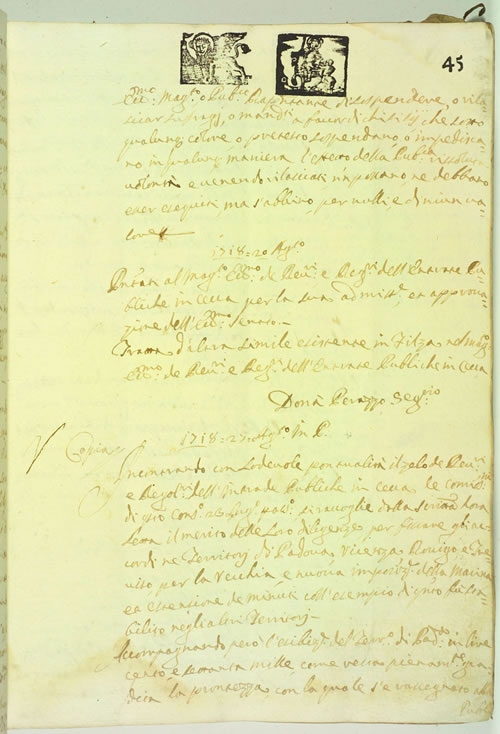 45
Ecc.mo Mag.to o Pub.co Rapresentante di sospendere, o rila-
sciar suffraggi, o mandati a favor di chi si sij che sotto
qualunq. colore o pretesto sospendano o impedisca-
no in qualunq. maniera l'effetto della Pub.ca risoluta
volontà e venendo rilasciati non possano ne debbano
esser eseguiti, ma s'abbino per nulli, e di niun va-
lore
1718 = 20 Ag.to
al Mag.to Ecc.mo de Rev.ri e Reg.ri dell'Entrate Pu-
bliche in Cecca per la sua admiss.e, et approva-
zione dell'Ecc.mo Senato.
Tratta da altra simile esistente in Filza nel Mag.to
Ecc.mo de Rev.ri e Reg.ri dell'Entrate Publiche in Cecca
Donà Perazzo Seg.rio
Copia
1718 = 27 = Ag.to In P.
Incontrando con lodevole pontualità il zelo de Rev.ri
e Regol.ri dell'Intrade Publiche in Cecca le comis.ni
di q.to Cons.o si raccoglie dalla scrittura hora
letta il merito delle loro diligenze per fissare gl'ac-
cordi ne Territorj di Padova, Vicenza, Rovigo, e Tre
viso per la vecchia e nuova imposiz.e della Macina
et estensione de minuti coll'esempio di q.nto fu sta-
bilito negl'altri Territorj.
Accompagnando però l'esibiz.e del Terr.o di Pad.a in lire
cento e sessanta mille, come vetta pienam.te gra-
dita la prontezza con la quale s'è rassegnato alla
Publ.